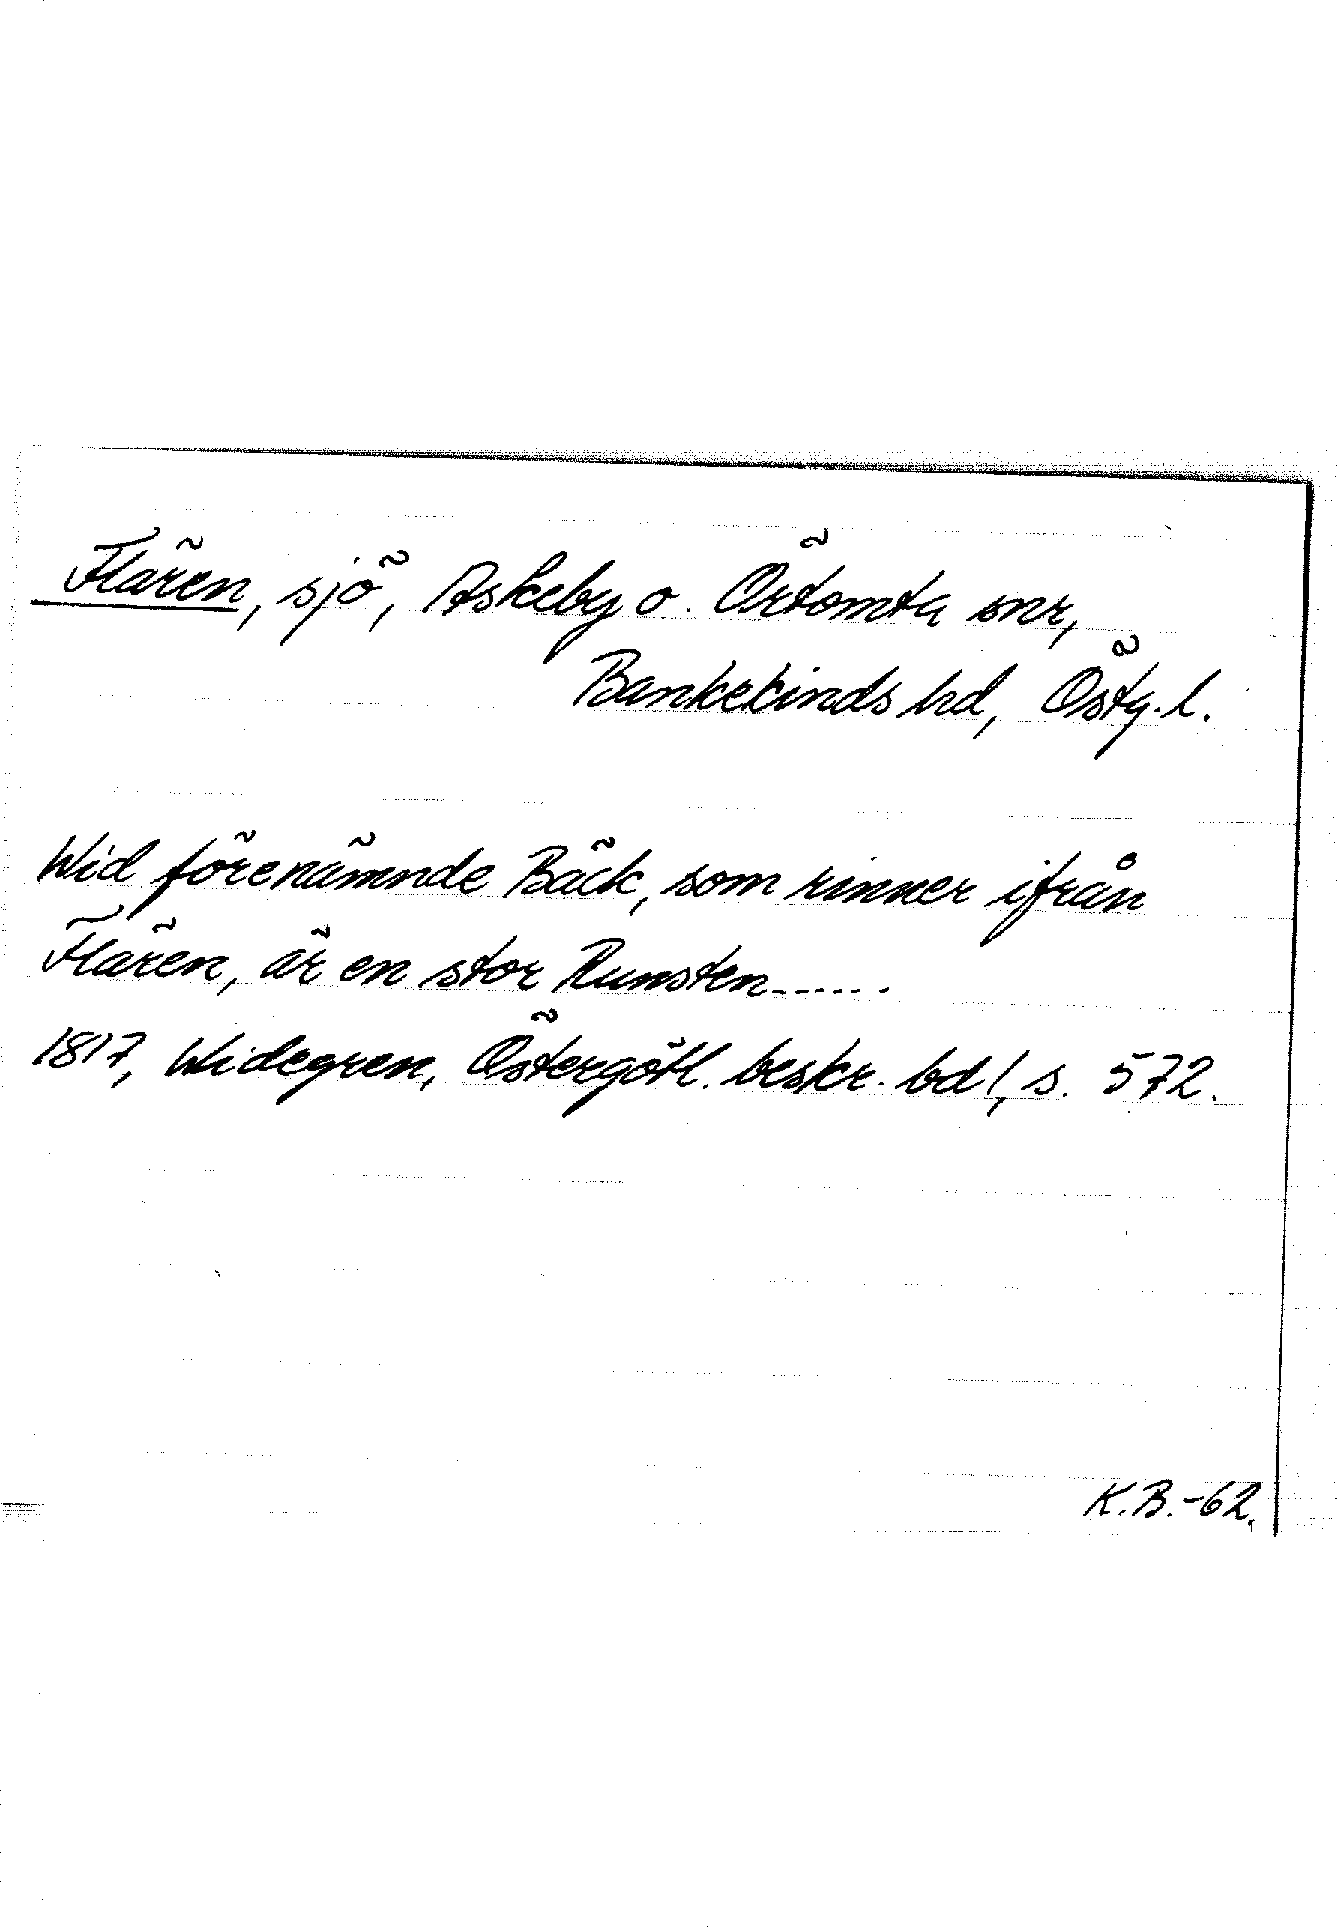 Flären, sjö, Askeby o. Örtomta snr,
Bankekinds hd, Östg.l.
Wid förenämnde Bäck, som rinner ifrån
Flären, är en stor Runsten------.
1817, Widegren, Östergötl. beskr. bd I, s. 572.
K.B.-62.